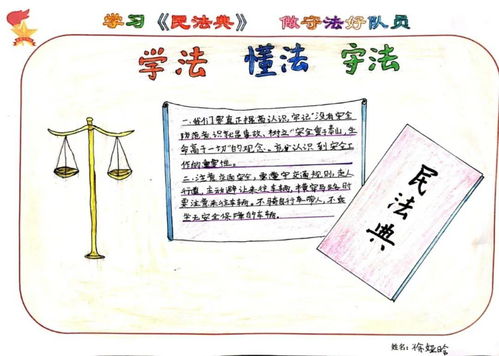 学习《民法典》 做守法好队员
学法 懂法 守法
一、我们要真正提高认识,牢记"没有安全
防范意识就是事故、树立"安全重于泰山,生
命高于一切"的观念。充分认识到安全工
作的重要性。
二、注意交通安全,要遵守交通规则,走人
行道,主动避让来往车辆,横穿马路时
要注意来往车辆。不骑自行车带人,不乘
坐无安全保障的车辆。
民法典
姓名:徐